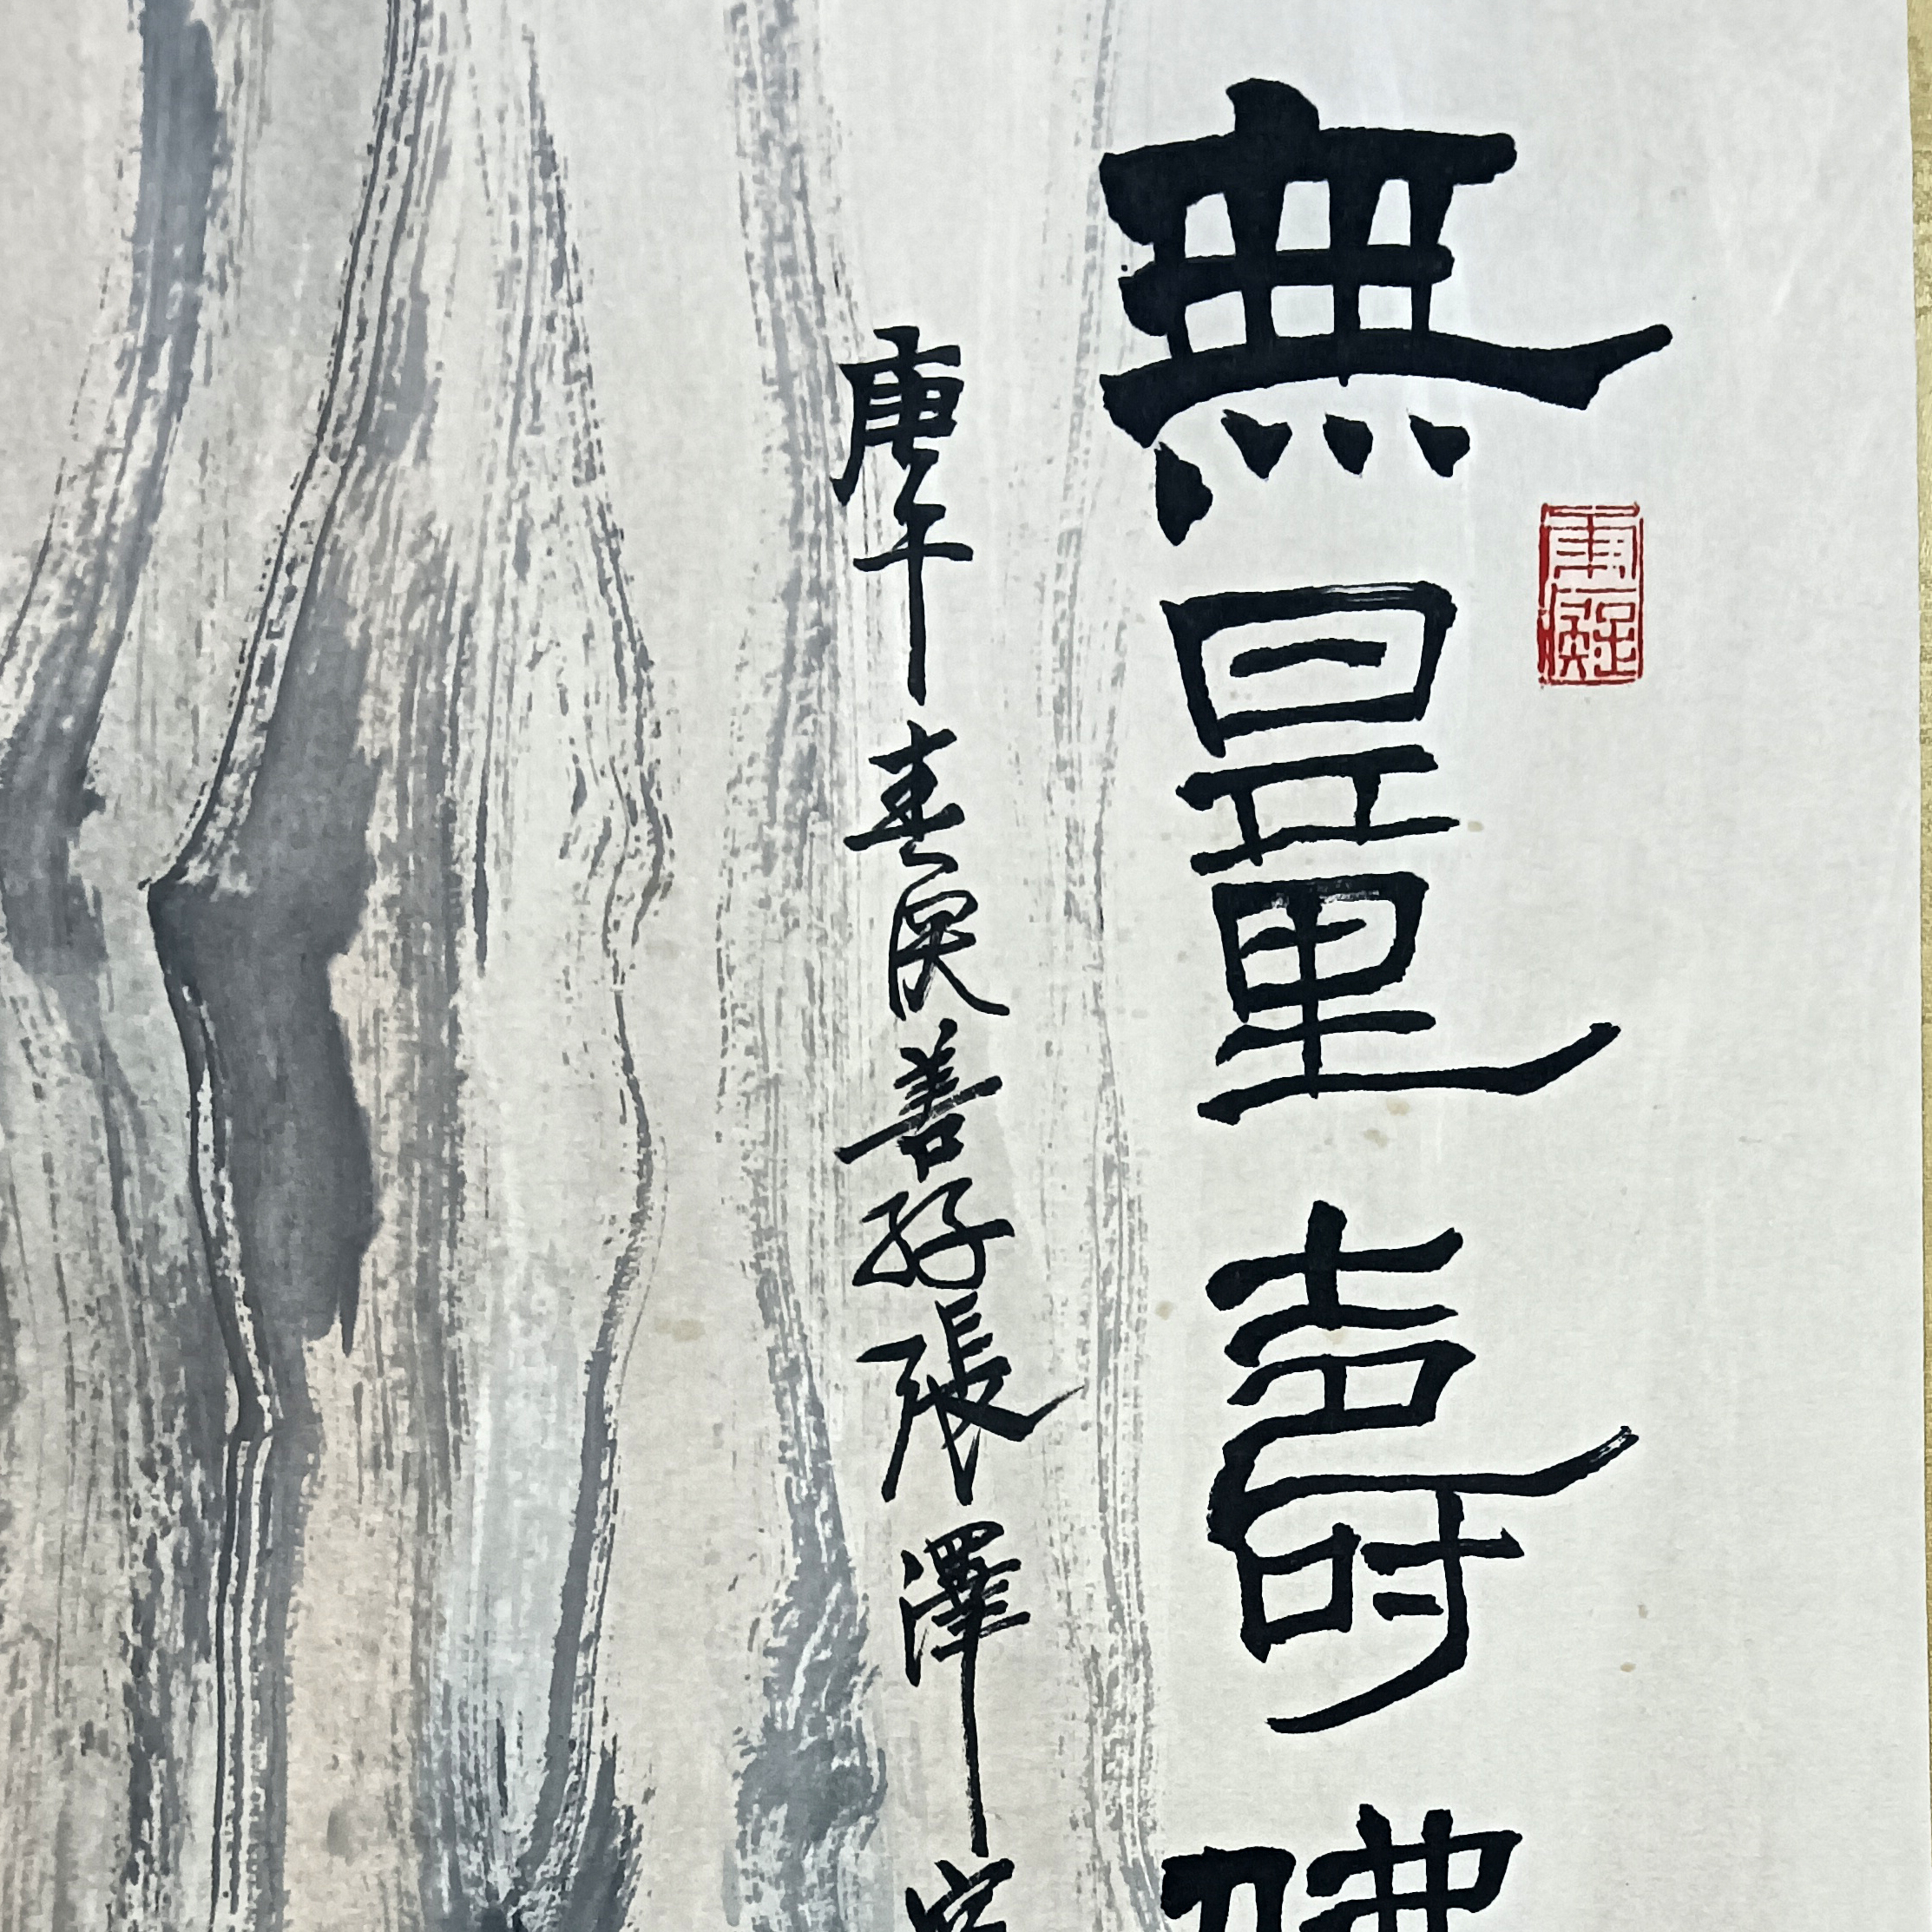 無量壽佛
庚午春晨善孖張澤寫